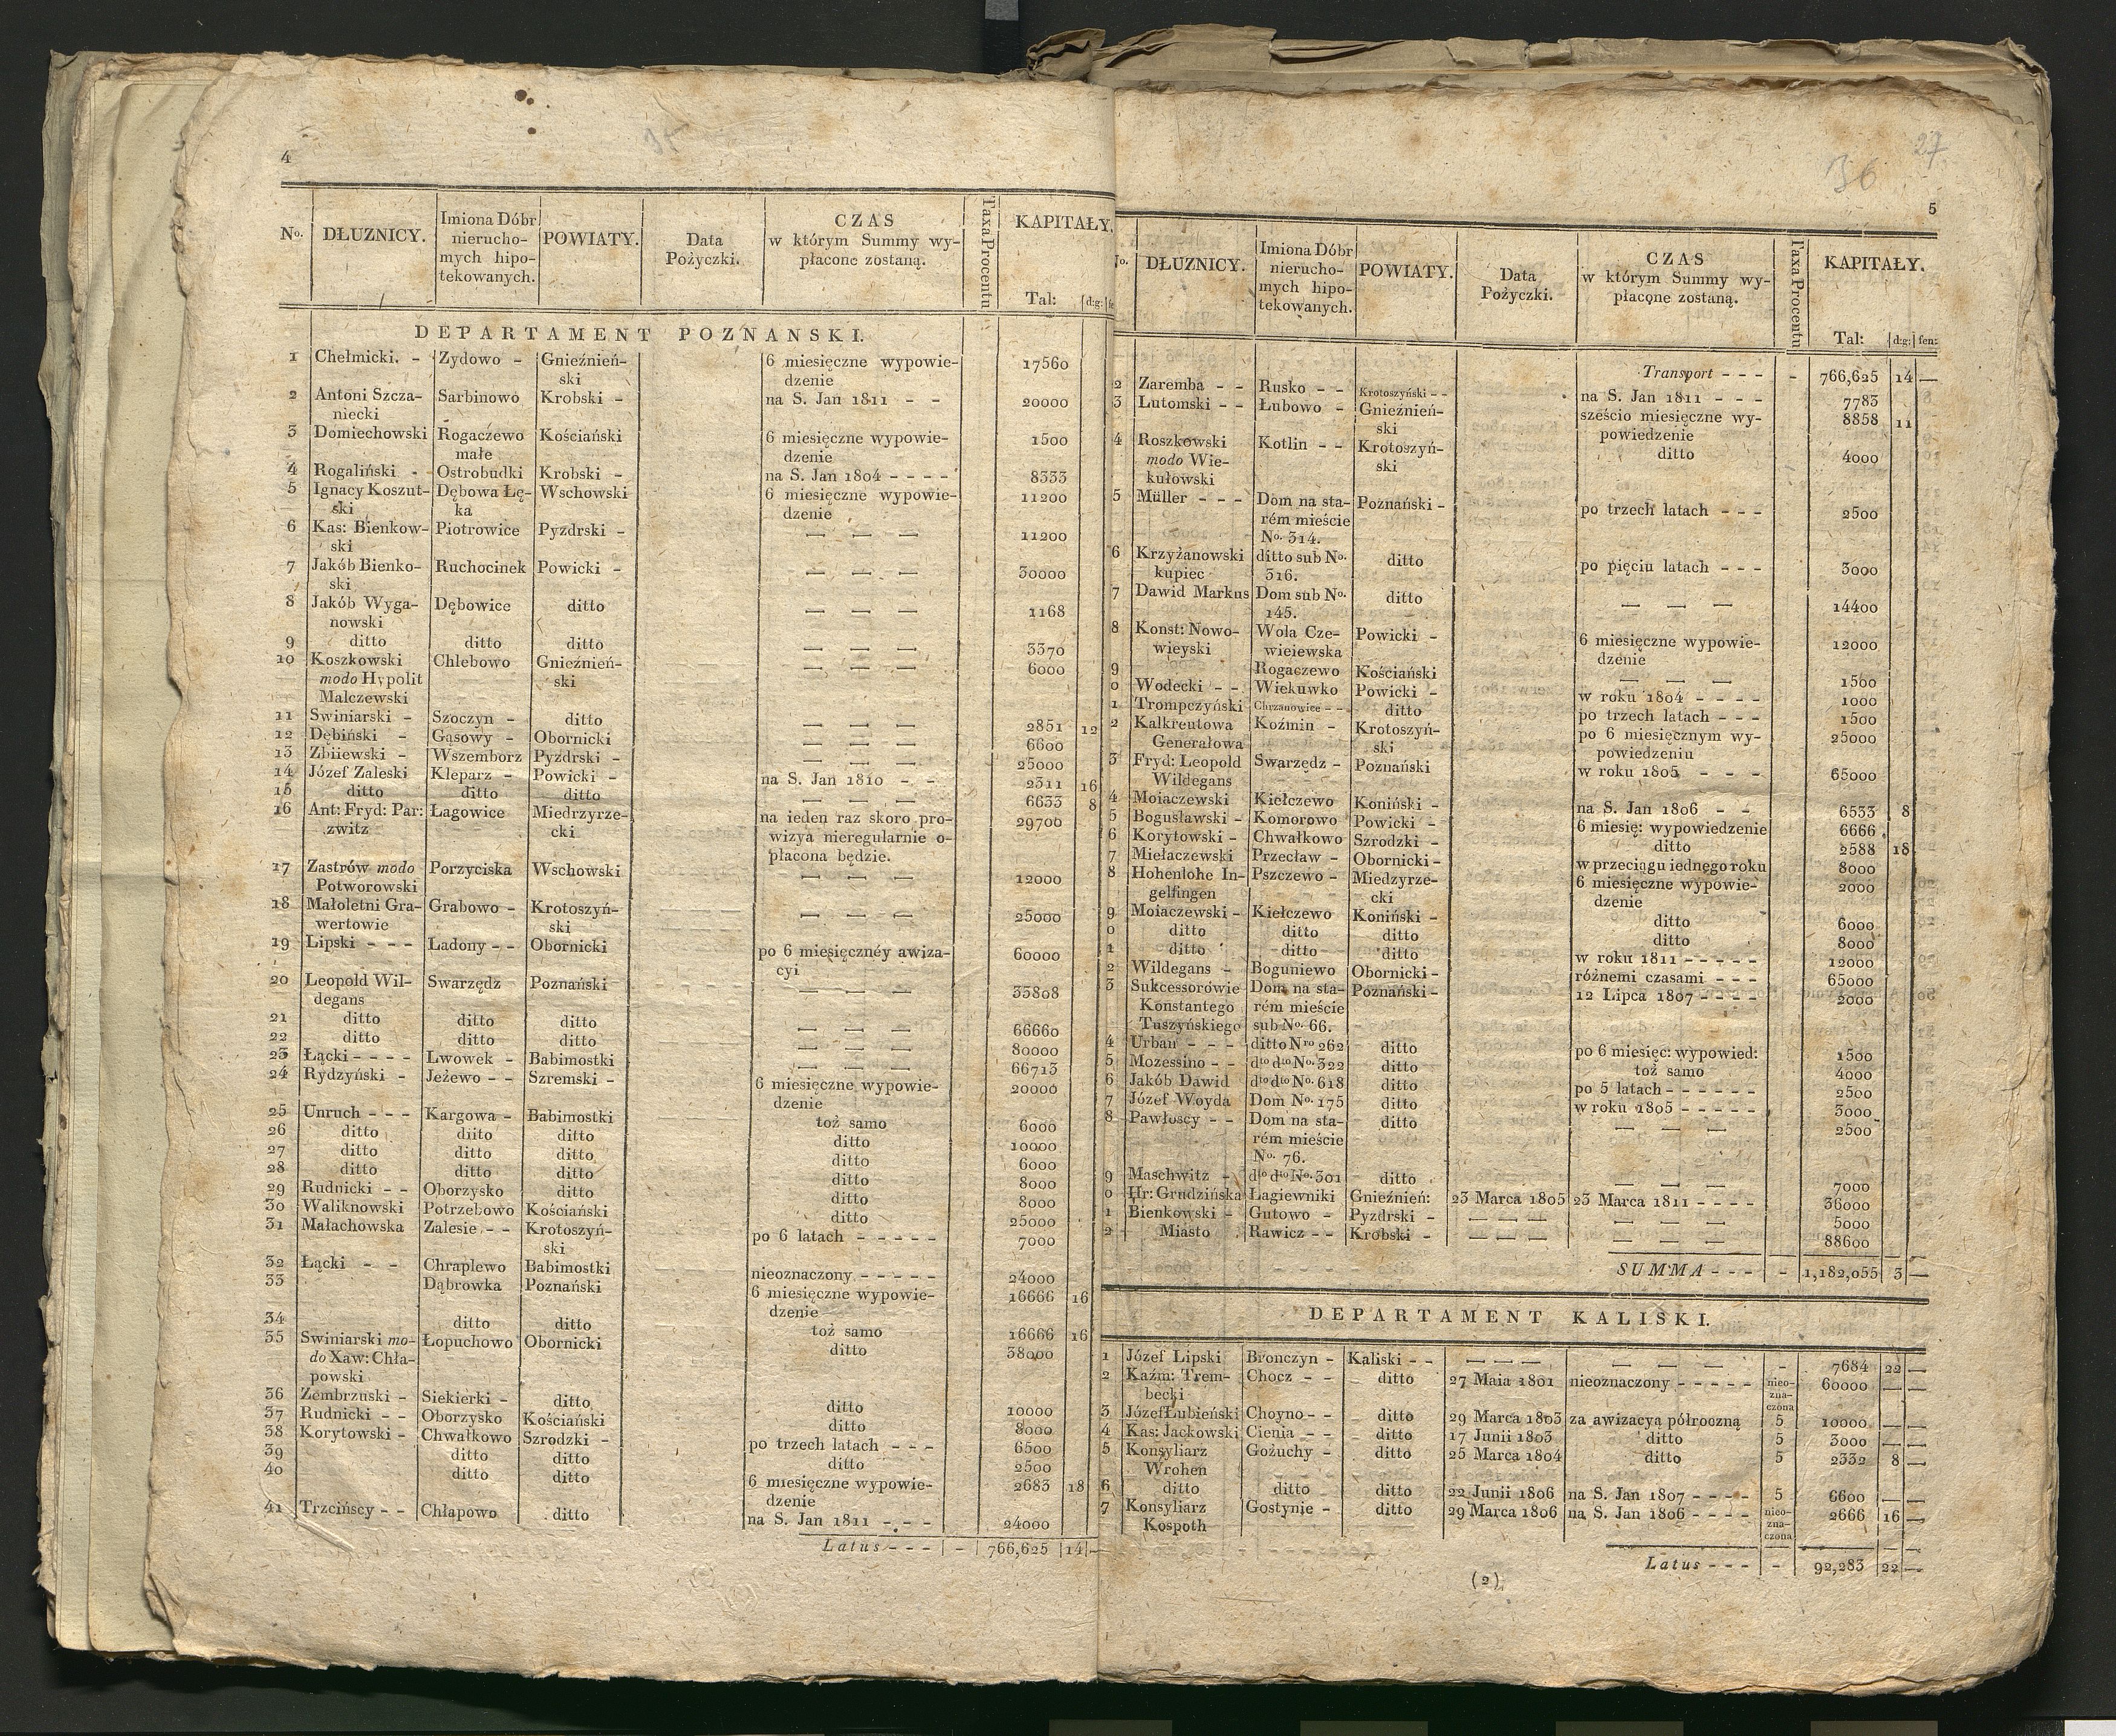 4
35
No. DŁUZNICY. Imiona Dóbr nierucho- mych hipo- tekowanych. POWIATY. Data Pożyczki. CZAS w którym Summy wy- płacone zostaną. Taxa Procentu KAPITAŁY.
Tal: d:g:
DEPARTAMENT POZNANSKI.
1 Chełmicki. - Zydowo - Gnieźnień- 6 miesięczne wypowie- 17560
ski dzenie
2 Antoni Szcza- Sarbinowo Krobski - na S. Jan 1811 - - 20000
niecki
3 Domiechowski Rogaczewo Kościański 6 miesięczne wypowie- 1500
małe dzenie
4 Rogaliński - Ostrobudki Krobski - na S. Jan 1804 - - - - 8333
5 Ignacy Koszut- Dębowa Łę- Wschowski 6 miesięczne wypowie- 11200
ski ka dzenie
6 Kas: Bienkow- Piotrowice Pyzdrski - — — — 11200
ski
7 Jakób Bienko- Ruchocinek Powicki - — — — 30000
ski
8 Jakób Wyga- Dębowice ditto — — — 1168
nowski
9 ditto ditto ditto — — — 3370
10 Koszkowski Chlebowo Gnieźnień- — — — 6000
modo Hypolit ski
Malczewski
11 Swiniarski - Szoczyn - ditto — — — 2851 12
12 Dębiński - Gąsowy - Obornicki — — — 6600
13 Zbiiewski - Wszemborz Pyzdrski - — — — 25000
14 Józef Zaleski Kleparz - Powicki - na S. Jan 1810 - - 2311 16
15 ditto ditto ditto — — — 6633 8
16 Ant: Fryd: Par: Łagowice Miedzyrze- na ieden raz skoro pro- 29700
zwitz cki wizya nieregularnie o-
płacona będzie.
17 Zastrów modo Porzyciska Wschowski — — — 12000
Potworowski
18 Małoletni Gra- Grabowo - Krotoszyń- — — — 25000
wertowie ski
19 Lipski - - - Ladony - - Obornicki po 6 miesięcznéy awiza- 60000
cyi
20 Leopold Wil- Swarzędz Poznański — — — 33808
degans
21 ditto ditto ditto — — — 66660
22 ditto ditto ditto — — — 80000
23 Łącki - - - - Lwowek - Babimostki — — — 66713
24 Rydzyński - Jeżewo - - Szremski - 6 miesięczne wypowie- 20000
dzenie
25 Unruch - - - Kargowa - Babimostki toż samo 6000
26 ditto diito ditto ditto 10000
27 ditto ditto ditto ditto 6000
28 ditto ditto ditto ditto 8000
29 Rudnicki - - Oborzysko ditto ditto 8000
30 Waliknowski Potrzebowo Kościański ditto 25000
31 Małachowska Zalesie - - Krotoszyń- po 6 latach - - - - - 7000
ski
32 Łącki - - Chraplewo Babimostki nieoznaczony - - - - - 24000
33 Dąbrowka Poznański 6 miesięczne wypowie- 16666 16
dzenie
34 ditto ditto toż samo 16666 16
35 Swiniarski mo- Łopuchowo Obornicki ditto 38000
do Xaw: Chła-
powski
36 Zembrzuski - Siekierki - ditto ditto 10000
37 Rudnicki - - Oborzysko Kościański ditto 8000
38 Korytowski - Chwałkowo Szrodzki - po trzech latach - - - 6500
39 ditto ditto ditto 2500
40 ditto ditto 6 miesięczne wypowie- 2683 18
dzenie
41 Trzcińscy - - Chłapowo ditto na S. Jan 1811 - - - 24000
Latus - - - - 766,625 14 —
27
36
5
No. DŁUZNICY. Imiona Dóbr nierucho- mych hipo- tekowanych. POWIATY. Data Pożyczki. CZAS w którym Summy wy- płacone zostaną. Taxa Procentu KAPITAŁY.
Tal: d:g: fen:
Transport - - - - 766,625 14 —
2 Zaremba - - Rusko - - Krotoszyński - - na S. Jan 1811 - - - 7783
3 Lutomski - - Łubowo - Gnieźnień- sześcio miesięczne wy- 8858 11
ski powiedzenie
4 Roszkowski Kotlin - - Krotoszyń- ditto 4000
modo Wie- ski
kułowski
5 Müller - - - Dom na sta- Poznański - po trzech latach - - - 2500
rém mieście
No. 314.
6 Krzyżanowski ditto sub No. ditto po pięciu latach - - - 3000
kupiec 316.
7 Dawid Markus Dom sub No. ditto — — — 14400
145.
8 Konst: Nowo- Wola Cze- Powicki - 6 miesięczne wypowie- 12000
wieyski wieiewska dzenie
9 Rogaczewo Kościański — — — 1500
0 Wodecki - - Wiekuwko Powicki - w roku 1804 - - - - 1000
1 Trompczyński Chrzanowice - - ditto po trzech latach - - - 1500
2 Kalkreutowa Koźmin - Krotoszyń- po 6 miesięcznym wy- 25000
Generałowa ski powiedzeniu
3 Fryd: Leopold Swarzędz - Poznański w roku 1805 - - - 65000
Wildegans
4 Moiaczewski Kiełczewo Koniński - na S. Jan 1806 - - 6533 8
5 Bogusławski - Komorowo Powicki - 6 miesię: wypowiedzenie 6666
6 Korytowski - Chwałkowo Szrodzki - ditto 2588 18
7 Miełaczewski Przecław - Obornicki - w przeciągu iednego roku 8000
8 Hohenlohe In- Pszczewo - Miedzyrze- 6 miesięczne wypowie- 2000
gelfingen cki dzenie
9 Moiaczewski - Kiełczewo Koniński - ditto 6000
0 ditto ditto ditto ditto 8000
1 ditto ditto ditto w roku 1811 - - - - - 12000
2 Wildegans - Boguniewo Obornicki - różnemi czasami - - - 65000
3 Sukcessorówie Dom na sta- Poznański - 12 Lipca 1807 - - - - 2000
Konstantego rém mieście
Tuszyńskiego sub No. 66.
4 Urban - - - ditto Nro 262 ditto po 6 miesięc: wypowied: 1500
5 Mozessino - - dto dto No. 322 ditto toż samo 4000
6 Jakób Dawid dto dto No. 618 ditto po 5 latach - - - - - 2500
7 Józef Woyda Dom No. 175 ditto w roku 1805 - - - - - 3000
8 Pawłoscy - - Dom na sta- ditto — — — 2500
rém mieście
No. 76.
9 Maschwitz - dto dto No. 301 ditto — — — 7000
0 Hr: Grudzińska Łagiewniki Gnieźnień: 23 Marca 1805 23 Marca 1811 - - - - 36000
1 Bienkowski - Gutowo - Pyzdrski - — — — — — — 5000
2 Miasto Rawicz - - Krobski - — — — — — — 88600
SUMMA - - - - 1,182,055 3 —
DEPARTAMENT KALISKI.
1 Józef Lipski Bronczyn - Kaliski - - — — — — — — - 7684 22 —
2 Kaźm: Trem- Chocz - - ditto 27 Maia 1801 nieoznaczony - - - - - nieo- zna- czona 60000 — —
becki
3 Józef Łubieński Choyno - - ditto 29 Marca 1803 za awizacyą półroczną 5 10000 — —
4 Kas: Jackowski Cienia - - ditto 17 Junii 1803 ditto 5 3000 — —
5 Konsyliarz Gożuchy - ditto 25 Marca 1804 ditto 5 2332 8 —
Wrohen
6 ditto ditto ditto 22 Junii 1806 na S. Jan 1807 - - - - 5 6600 — —
7 Konsyliarz Gostynie - ditto 29 Marca 1806 na S. Jan 1806 - - - - nieo- zna- czona 2666 16 —
Kospoth
Latus - - - - 92,283 22 —
(2)